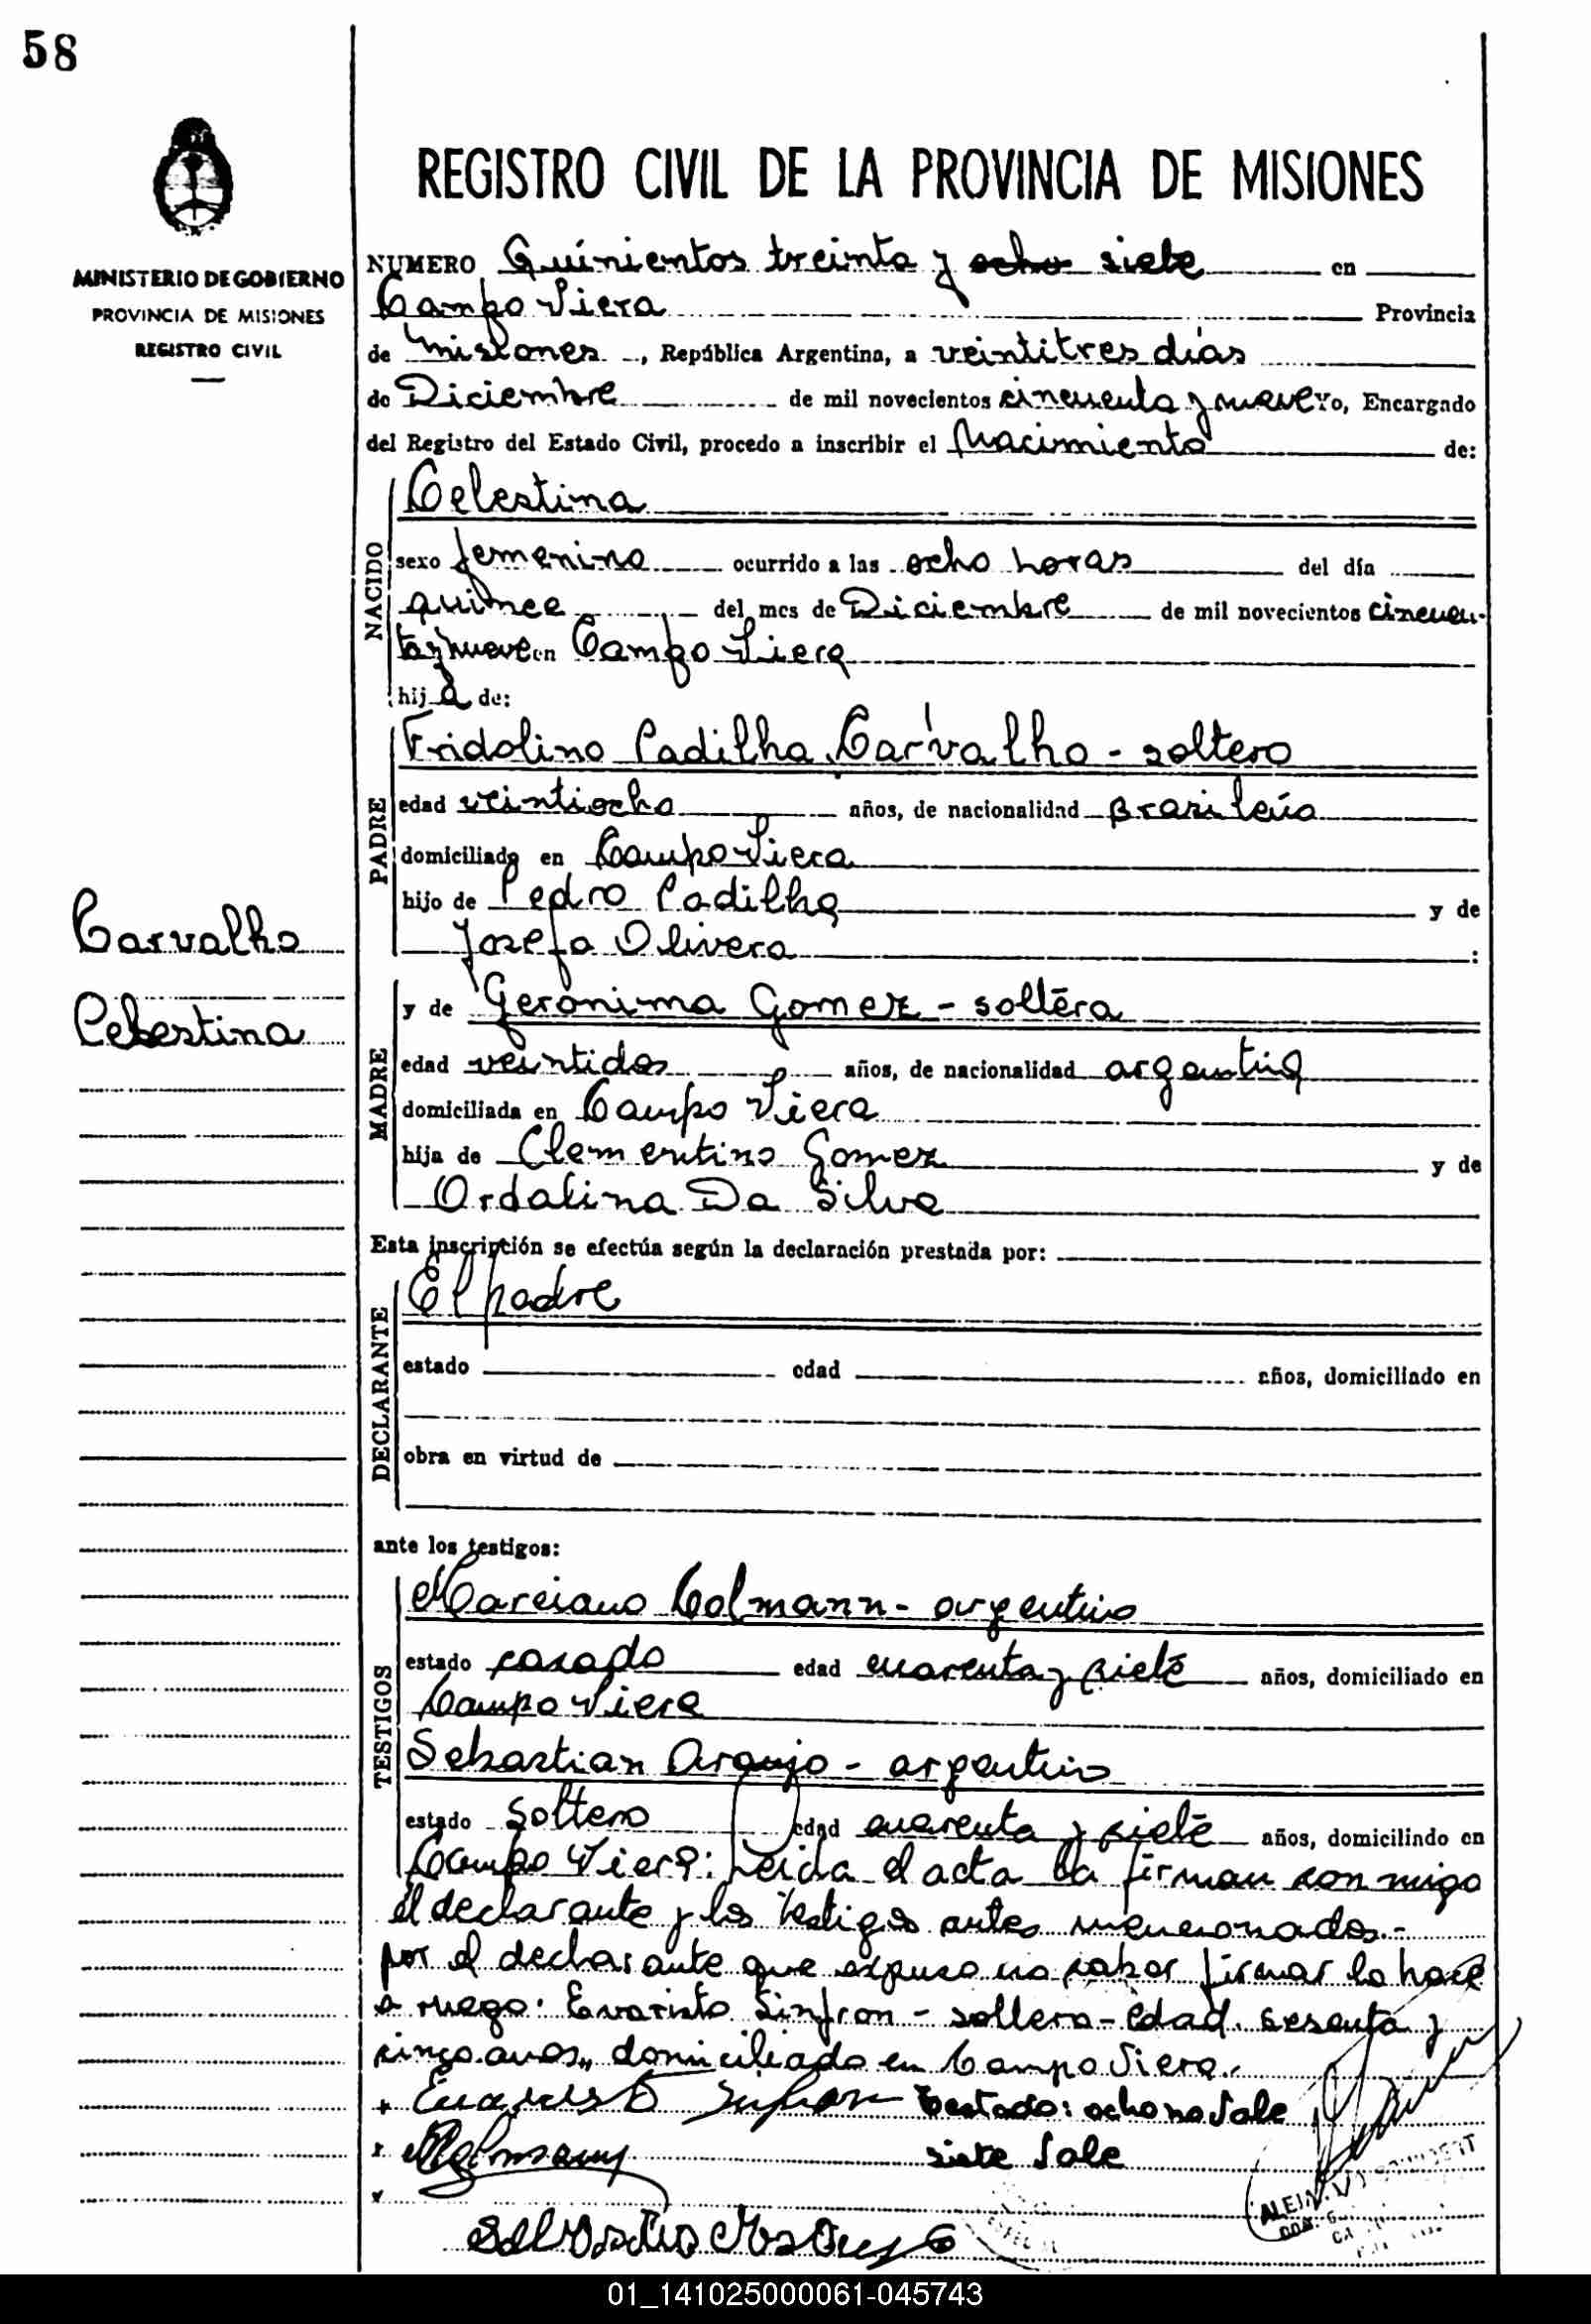 58
MINISTERIO DE GOBIERNO
PROVINCIA DE MISIONES
REGISTRO CIVIL
REGISTRO CIVIL DE LA PROVINCIA DE MISIONES
NUMERO Quinientos treinta y ocho siete en
Campo Viera Provincia
de Misiones, República Argentina, a veintitres días
de Diciembre de mil novecientos cincuenta y nueve Yo, Encargado
del Registro del Estado Civil, procedo a inscribir el Nacimiento de:
NACIDO
Celestina
sexo femenino ocurrido a las ocho horas del día
quince del mes de Diciembre de mil novecientos cincuen-
ta y nueve en Campo Viera
hija de:
PADRE
Fridolino Padilha Carvalho - soltero
edad veintiocho años, de nacionalidad Brasileña
domiciliado en Campo Viera
hijo de Pedro Padilha y de
Josefa Olivera :
Carvalho
Celestina
MADRE
y de Geronima Gomez - soltera
edad veintidos años, de nacionalidad argentina
domiciliada en Campo Viera
hija de Clementino Gomez y de
Ordalina Da Silva
Esta inscripción se efectúa según la declaración prestada por:
DECLARANTE
El padre
estado edad años, domiciliado en
obra en virtud de
ante los testigos:
TESTIGOS
Marciano Colmann - argentino
estado casado edad cuarenta y siete años, domiciliado en
Campo Viera
Sebastian Araujo - argentino
estado soltero edad cuarenta y siete años, domiciliado en
Campo Viera: Leida el acta la firman con migo
el declarante y los testigos antes mencionados.-
por el declarante que expuso no saber firmar lo hace
a ruego: Evaristo Sinfron - soltero - edad sesenta y
cinco años, domiciliado en Campo Viera.
Testado: ocho no Vale
siete Vale
01_141025000061-045743